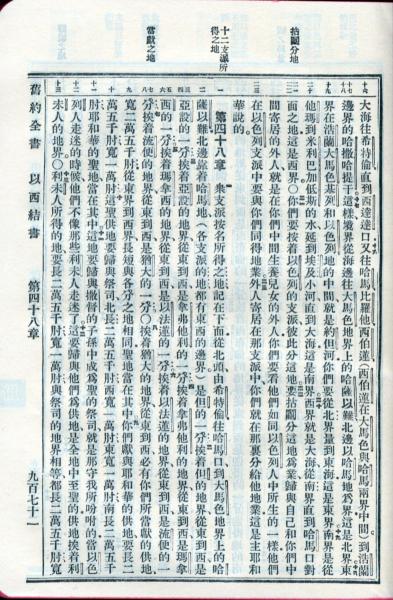 拈鬮分地
十二支派所
得之地
當獻之地
大海往希特倫直到西達達口又往哈馬比羅他西伯蓮(西伯蓮在大馬色與哈馬兩界中間)到浩蘭
邊界的哈撒哈提干這樣境界從海邊往大馬色地界上的哈薩以難北邊以哈馬地爲界這是北界東
界在浩蘭大馬色基列和以色列地的中間就是約但河你們要從北界量到東海這是東界南界是從
他瑪到米利巴加低斯的水延到埃及小河直到大海這是南界西界就是大海從南界直到哈馬口對
面之地這是西界〇你們要按着以色列的支派彼此分這地要拈鬮分這地爲業歸與自己和你們中
間寄居的外人就是在你們中間生養兒女的外人你們要看他們如同以色列人中所生的一樣他們
在以色列支派中要與你們同得地業外人寄居在那支派中你們就在那裏分給他地業這是主耶和
華說的
第四十八章 衆支派按名所得之地記在下面從北頭由希特倫往哈馬口到大馬色地界上的哈
薩以難北邊靠着哈馬地(各支派的地都有東西的邊界)是但的一分挨着但的地界從東到西是
亞設的一分挨着亞設的地界從東到西是拿弗他利的一分挨着拿弗他利的地界從東到西是瑪拿
西的一分挨着瑪拿西的地界從東到西是以法蓮的一分挨着以法蓮的地界從東到西是流便的一
分挨着流便的地界從東到西是猶大的一分〇挨着猶大的地界從東到西必有你們所當獻的供地
寬二萬五千肘從東界到西界長短與各分之地相同聖地當在其中你們獻與耶和華的供地要長二
萬五千肘寬一萬肘這聖供地要歸與祭司北長二萬五千肘西寬一萬肘東寬一萬肘南長二萬五千
肘耶和華的聖地當在其中這地要歸與撒督的子孫中成爲聖的祭司就是那守我所吩咐的當以色
列人走迷的時候他們不像那些利未人走迷了這要歸與他們爲供地是全地中至聖的供地挨着利
未人的地界〇利未人所得的地要長二萬五千肘寬一萬肘與祭司的地界相等都長二萬五千肘寬
舊約全書 以西結書 第四十八章 九百七十一